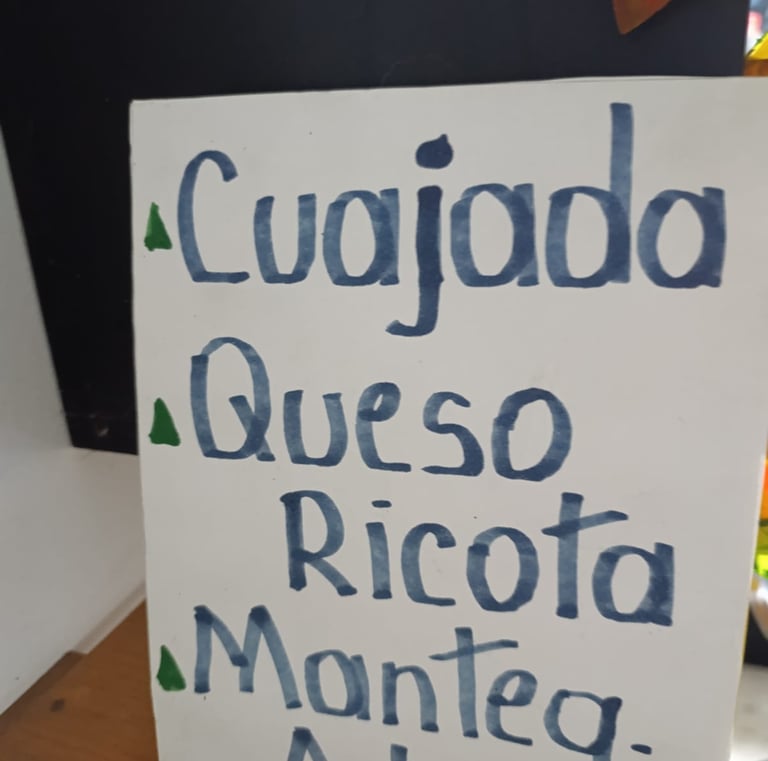 Cuajada
Queso
Ricota
Manteq.